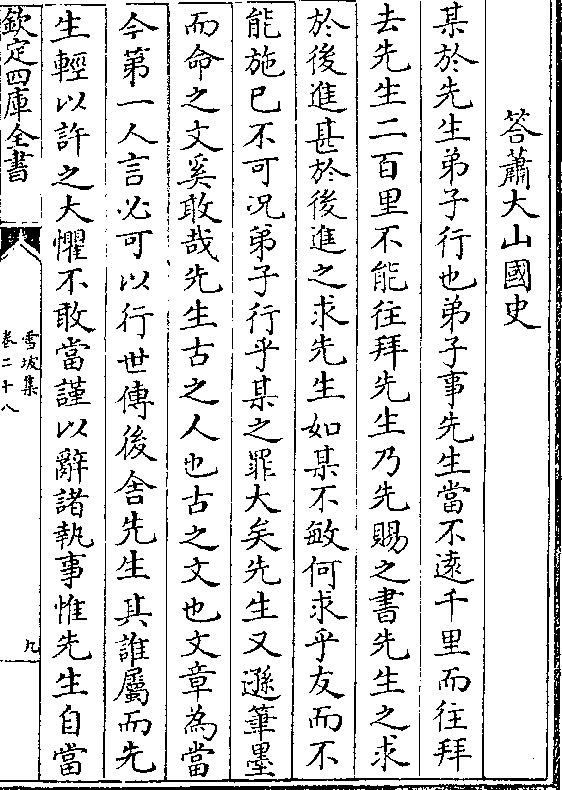 答蕭大山國史
某於先生弟子行也弟子事先生當不逺千里而往拜
去先生二百里不能往拜先生乃先賜之書先生之求
於後進甚於後進之求先生如某不敏何求乎友而不
能施已不可况弟子行乎某之罪大矣先生又遜筆墨
而命之文奚敢哉先生古之人也古之文也文章為當
今第一人言必可以行世傳後舍先生其誰屬而先
生輕以許之大懼不敢當謹以辭諸執事惟先生自當
欽定四庫全書
雪坡集
卷二十八
九